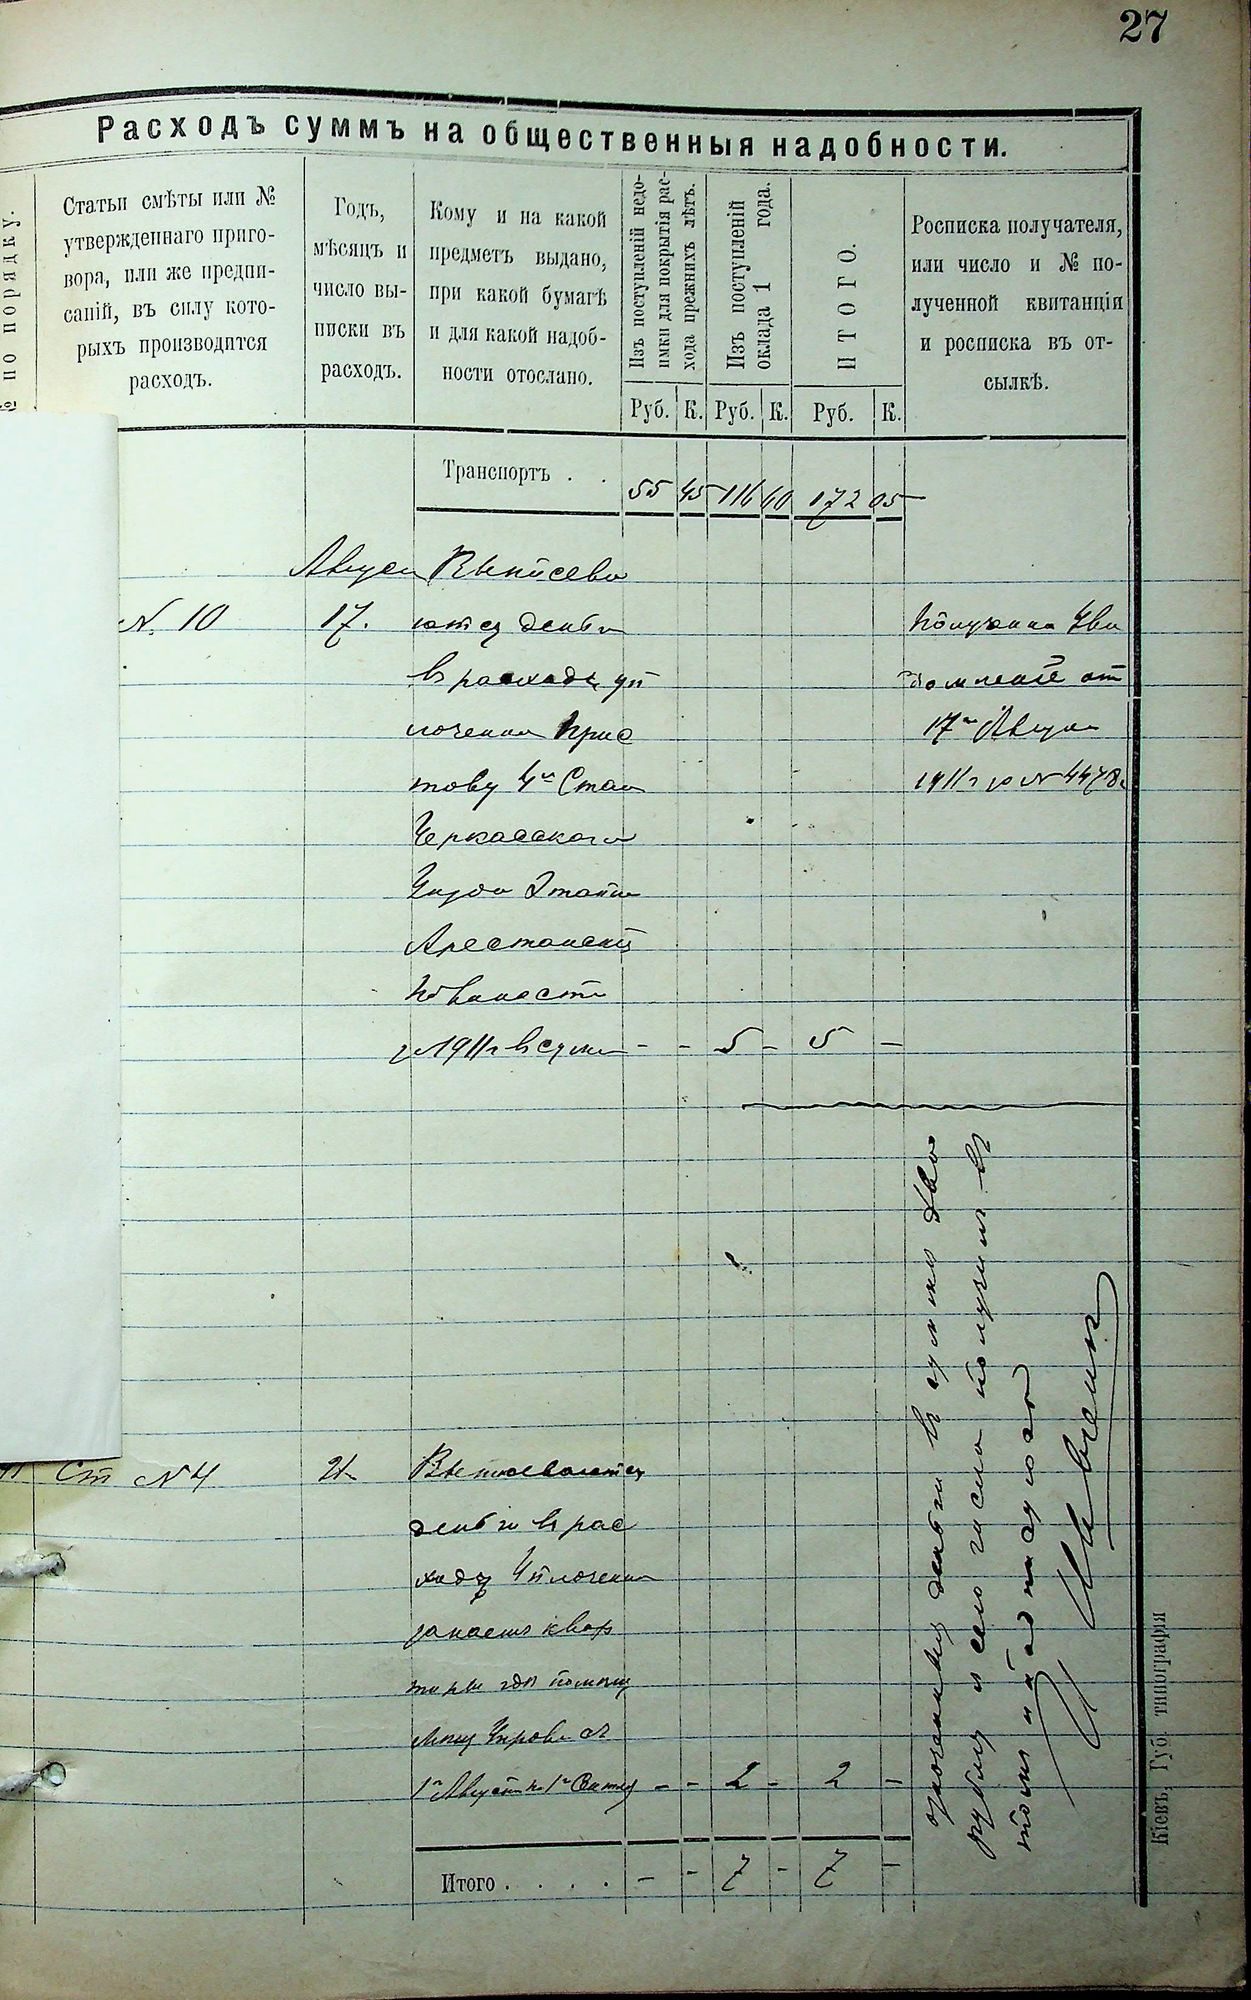 27
Расходъ суммъ на общественныя надобности.
№ по порядку.
Статьи смѣты или №
утвержденнаго приго-
вора, или же предпи-
саній, въ силу кото-
рыхъ производится
расходъ.
Годъ,
мѣсяцъ и
число вы-
писки въ
расходъ.
Кому и на какой
предметъ выдано,
при какой бумагѣ
и для какой надоб-
ности отослано.
Изъ поступленій недо-
имки для покрытія рас-
хода прежнихъ лѣтъ.
Изъ поступленій
оклада 1 года.
ИТОГО.
Росписка получателя,
или число и № по-
лученной квитанціи
и росписка въ от-
сылкѣ.
Руб. К. Руб. К. Руб. К.
Транспортъ . . 55 45 116 60 172 05
Выписыва
N. 10 17. ются деньги
въ расходъ уп
лоченни Прис
тову 4го Стан
Черкасскаго
Уѣзда
Арестанской
Повинности
за 1911 г в суми - - 5 - 5 -
Получена Уви
домленіе от
17го Августа
1911 г за № 4478
Ст N 4 21 Выписываются
деньги въ рас
ходъ Уплочени
за наемъ квар
тиры для помощ
1го Августа по 1е Сентяб - - 2 - 2 -
деньги въ суми два
рубля сего числа получилъ въ
томъ и подписуюсь
Итого . . . . - - 7 - 7 -
Кіевъ, Губ. типографія